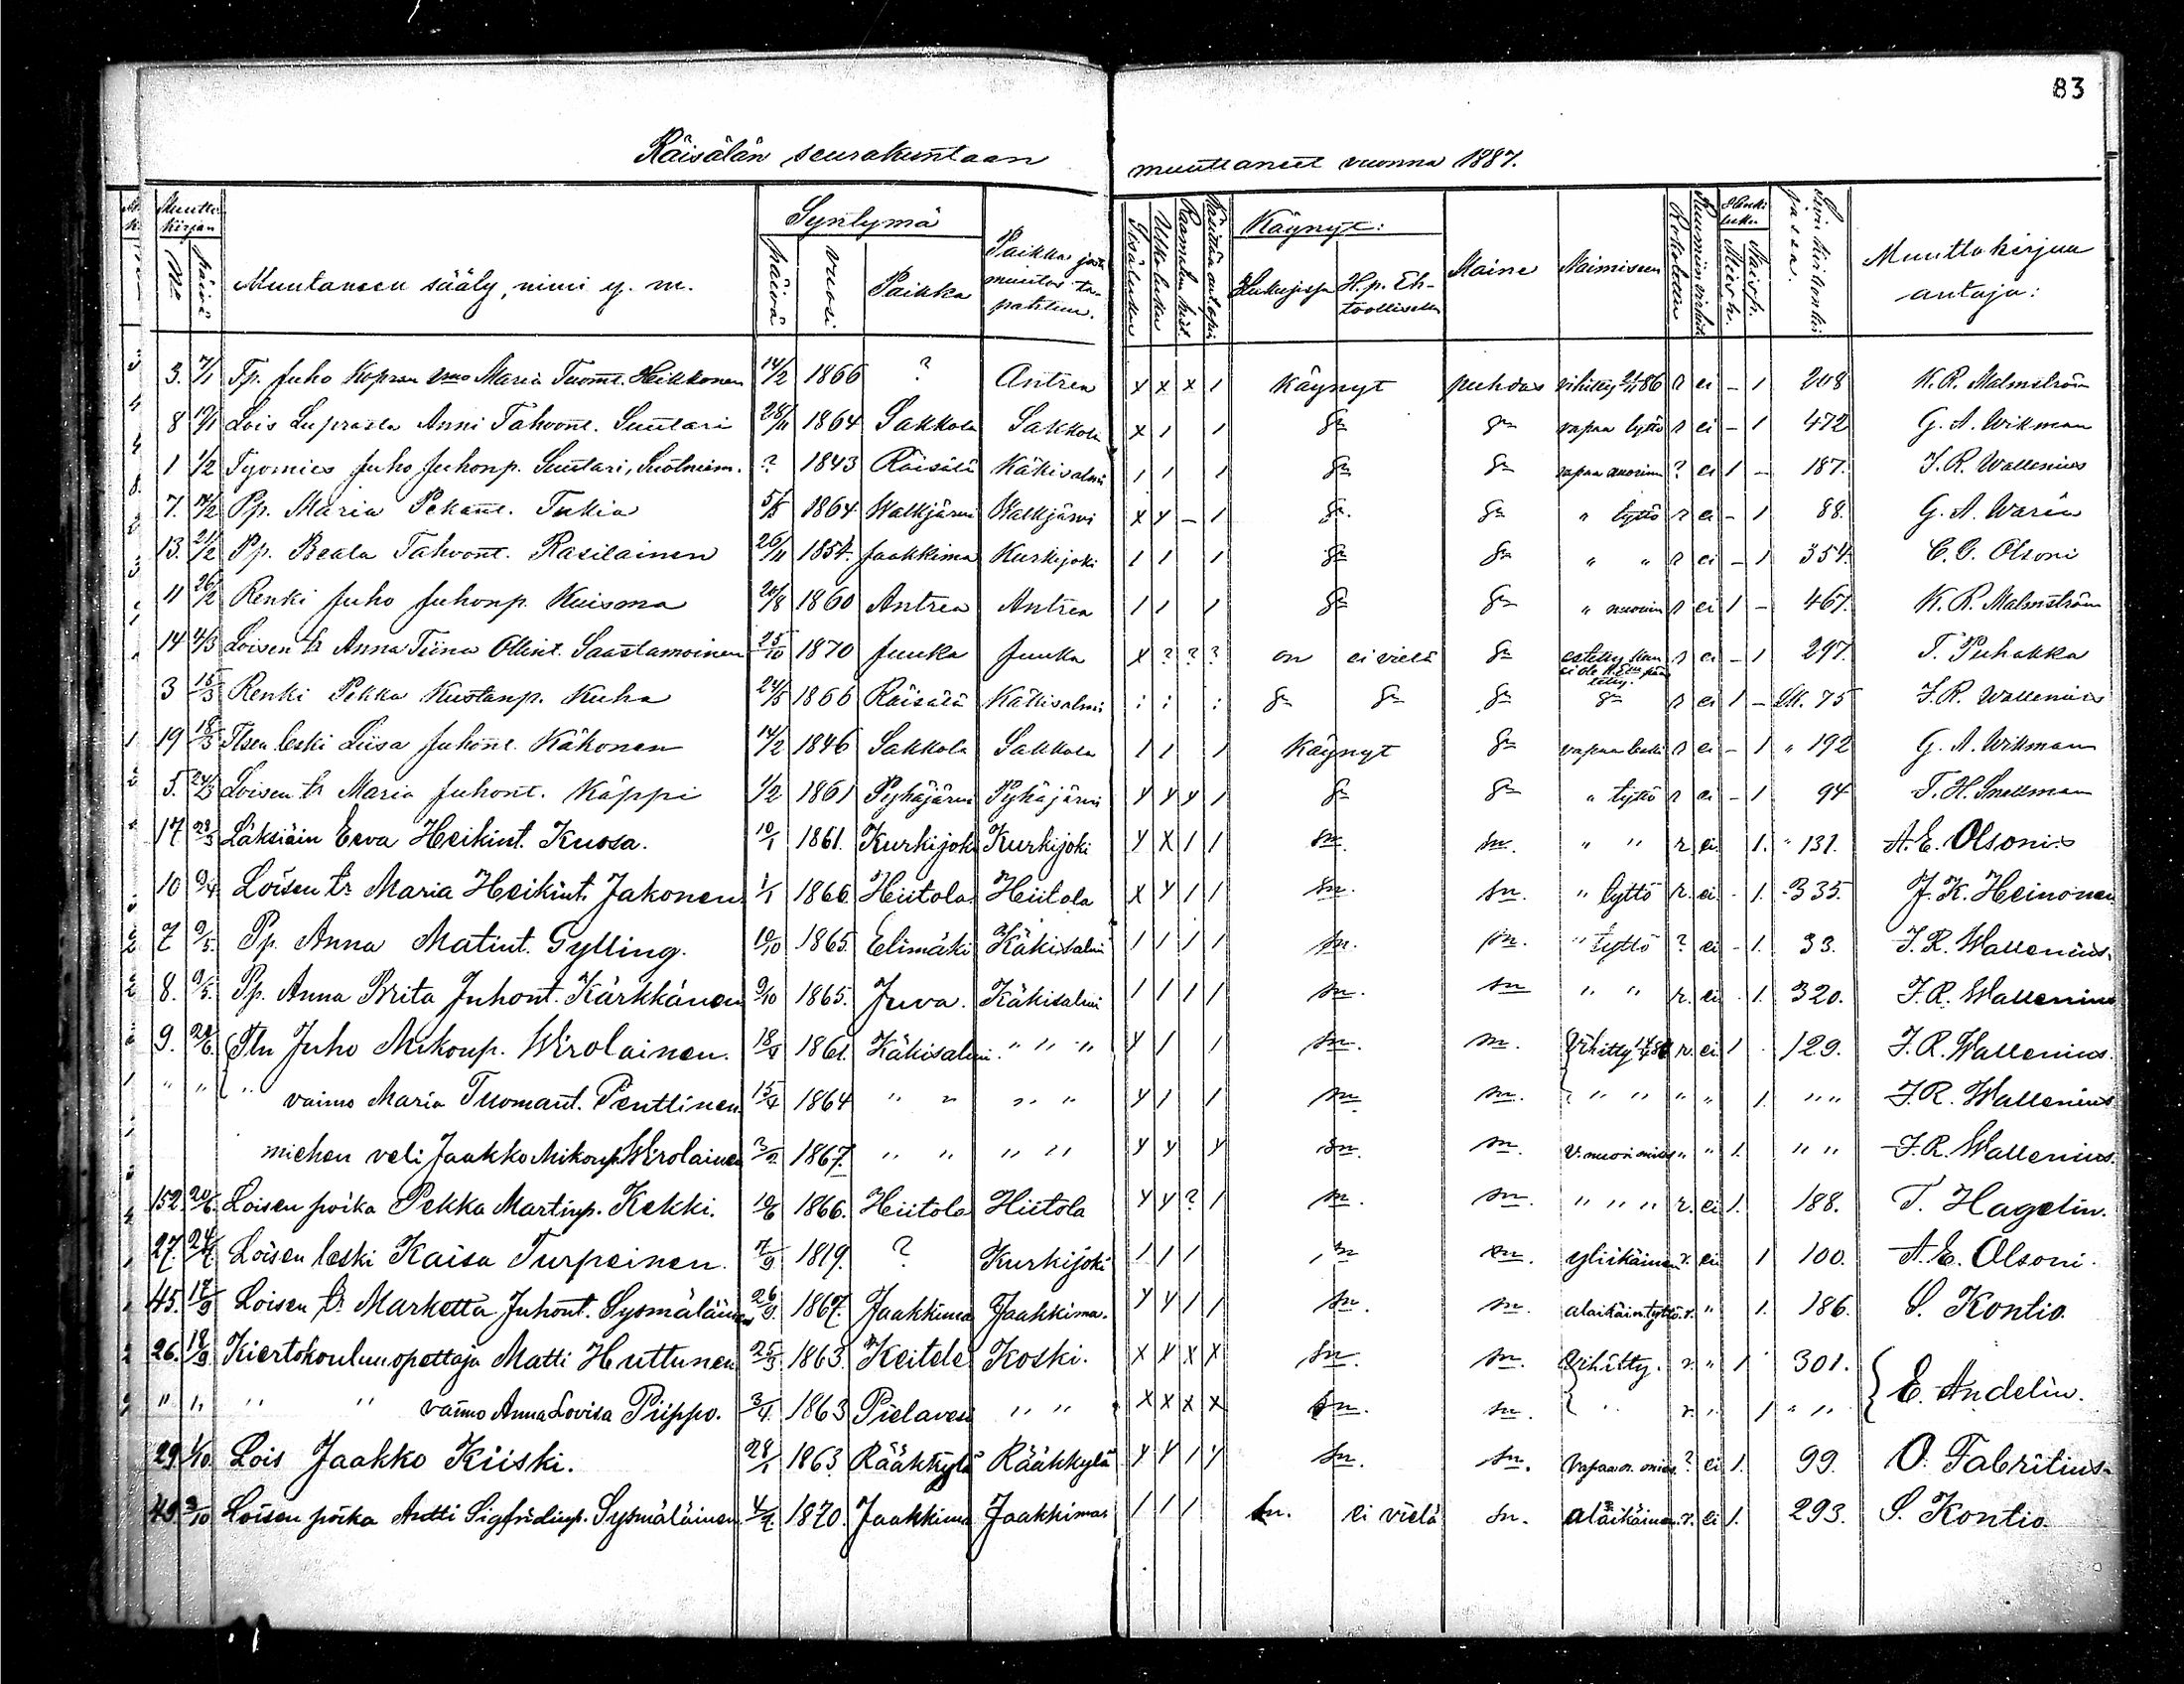 83
Räisälän seurakuntaan muuttaneet vuonna 1887.
Muutto kirjan Syntymä Käynyt: Henki luku
No päivä Muutaneen sääty, nimi y. m. päivä vuosi Paikka Paikka josta muutos ta- pahtun. Sisäluku Ulkoluku Käynyt: Lukusija H. p. Eh- toollisella Maine Naimiseen Rokotettu Mieisk. Naisp. Muuttokirjan antaja:
3. 7/1 Tp. Juho Kopran vmo Maria Tuomt. Heikkonen 14/2 1866 ? Antrea x x x 1 Käynyt puhdas vihitty 21/11 86 r ei - 1 208 K. R. Malmström
8 19/1 Lois Anni Tahvont. Suutari 28/11 1864 Sakkola Sakkola x 1 1 sn sn vapaa tyttö r ei - 1 472 G. A. Wikman
1 1/2 Työmies Juho Juhonp. Suutari, ? 1843 Räisälä Käkisalmi 1 1 1 sn sn vapaa ? ei 1 - 187. J. R. Wallenius
7. 14/2 Pp. Maria Pekant. Tukia 5/5 1864 Walkjärwi Walkjärwi x y - 1 sn. sn " tyttö r ei - 1 88. G. A. Warén
13. 21/2 Pp. Beata Tahvont. Rasilainen 26/11 1854. Jaakkima Kurkijoki 1 1 1 sn sn " " r ei - 1 354. C. G. Olsoni
11 26/2 Renki Juho Juhonp. Kuisma 20/8 1860 Antrea Antrea 1 1 1 sn sn " nuorim r ei 1 - 467. K. R. Malmström
14 4/3 Loisen tr Anna Tiina Ollint. Saastamoinen 25/10 1870 Juuka Juuka x ? ? ? on ei vielä sn r ei - 1 297. T. Puhakka
3 15/3 Renki Pekka Kustanp. Kuha 24/5 1866 Räisälä Käkisalmi : : : sn sn sn sn r ei 1 - 75 J. R. Wallenius
19 18/3 Itsen leski Liisa Juhont. Kähonen 14/2 1846 Sakkola Sakkola 1 1 1 Käynyt sn vapaa leski r ei - 1 " 192 G. A. Wikman
5. 24/3 Loisen tr Maria Juhont. Käppi 1/2 1861 Pyhäjärwi Pyhäjärwi y y y 1 sn sn " tyttö r ei - 1 94 T. H. Snellman
17 28/3 Läksiäin Eeva Heikint. Kuosa. 10/1 1861. Kurkijoki Kurkijoki y x 1 1 sn. sn. " " r. ei. 1. " 131. A. E. Olsoni
10 9/4 Loisen tr Maria Heikint. Jakonen 1/1 1866. Hiitola Hiitola x y 1 1 sn. sn. " tyttö r. ei. - 1. 335. J. K. Heinonen
7 9/5. Pp. Anna Matint. Gylling. 10/10 1865. Elimäki Käkisalmi 1 1 1 1 sn. sn. " tyttö ? ei - 1. 33. J. R. Wallenius.
8. 9/5. Pp. Anna Brita Juhont. Kärkkänen 9/10 1865. Juva. Käkisalmi 1 1 1 1 sn. sn " " r. ei. 1. 320. J. R. Wallenius
9. 20/6. Itn Juho Mikonp. Wirolainen. 18/4 1861. Käkisalmi. " " " y 1 1 sn. sn. vihitty r. ei. 1 129. J. R. Wallenius.
" " " vaimo Maria Tuomant. Penttinen 15/4 1864 " " " " y 1 1 sn sn. " " " " 1. " " J. R. Wallenius
miehen veli Jaakko Mikonp. Wirolainen 3/2. 1867. " " " " y y y sn. sn. v. nuori mies " " 1. " " J. R. Wallenius.
152. 20/6. Loisen poika Pekka Martinp. Kekki. 10/6 1866. Hiitola Hiitola y y ? 1 sn. sn. " " " r. ei. 1. 188. T. Hagelin.
27. 24/7. Loisen leski Kaisa Turpeinen. 7/9 1819. ? Kurkijoki 1 1 1 sn sn. yliikäinen r. ei 1 100. A. E. Olsoni.
45. 17/9 Loisen tr Marketta Juhont. Sysmäläinen 26/9. 1867. Jaakkima Jaakkima. y y 1 1 sn. sn. alaikäin. tyttö. r. " 1. 186. S. Kontio.
26. 18/9. Kiertokoulun opettaja Matti Huttunen 25/3. 1863. Keitele Koski. x y x x sn. sn. vihitty. r. " 1 301. E. Andelin.
" " " " vaimo Anna Lovisa Piippo. 3/4. 1863 Pielaves " " x x x x sn. sn. " r. " 1 " "
29. 1/10 Lois Jaakko Kiiski. 28/1 1863 Rääkkylä Rääkkylä y y 1 y sn. sn. vapaa n. mies ? ei 1. 99. O. Fabritius.
49. 3/10 Loisen poika Antti Sigfridinp. Sysmäläinen. 4/2. 1870. Jaakkima Jaakkimas 1 1 1 sn. ei vielä sn. alaikäinen. r. ei 1. 293. S. Kontio.